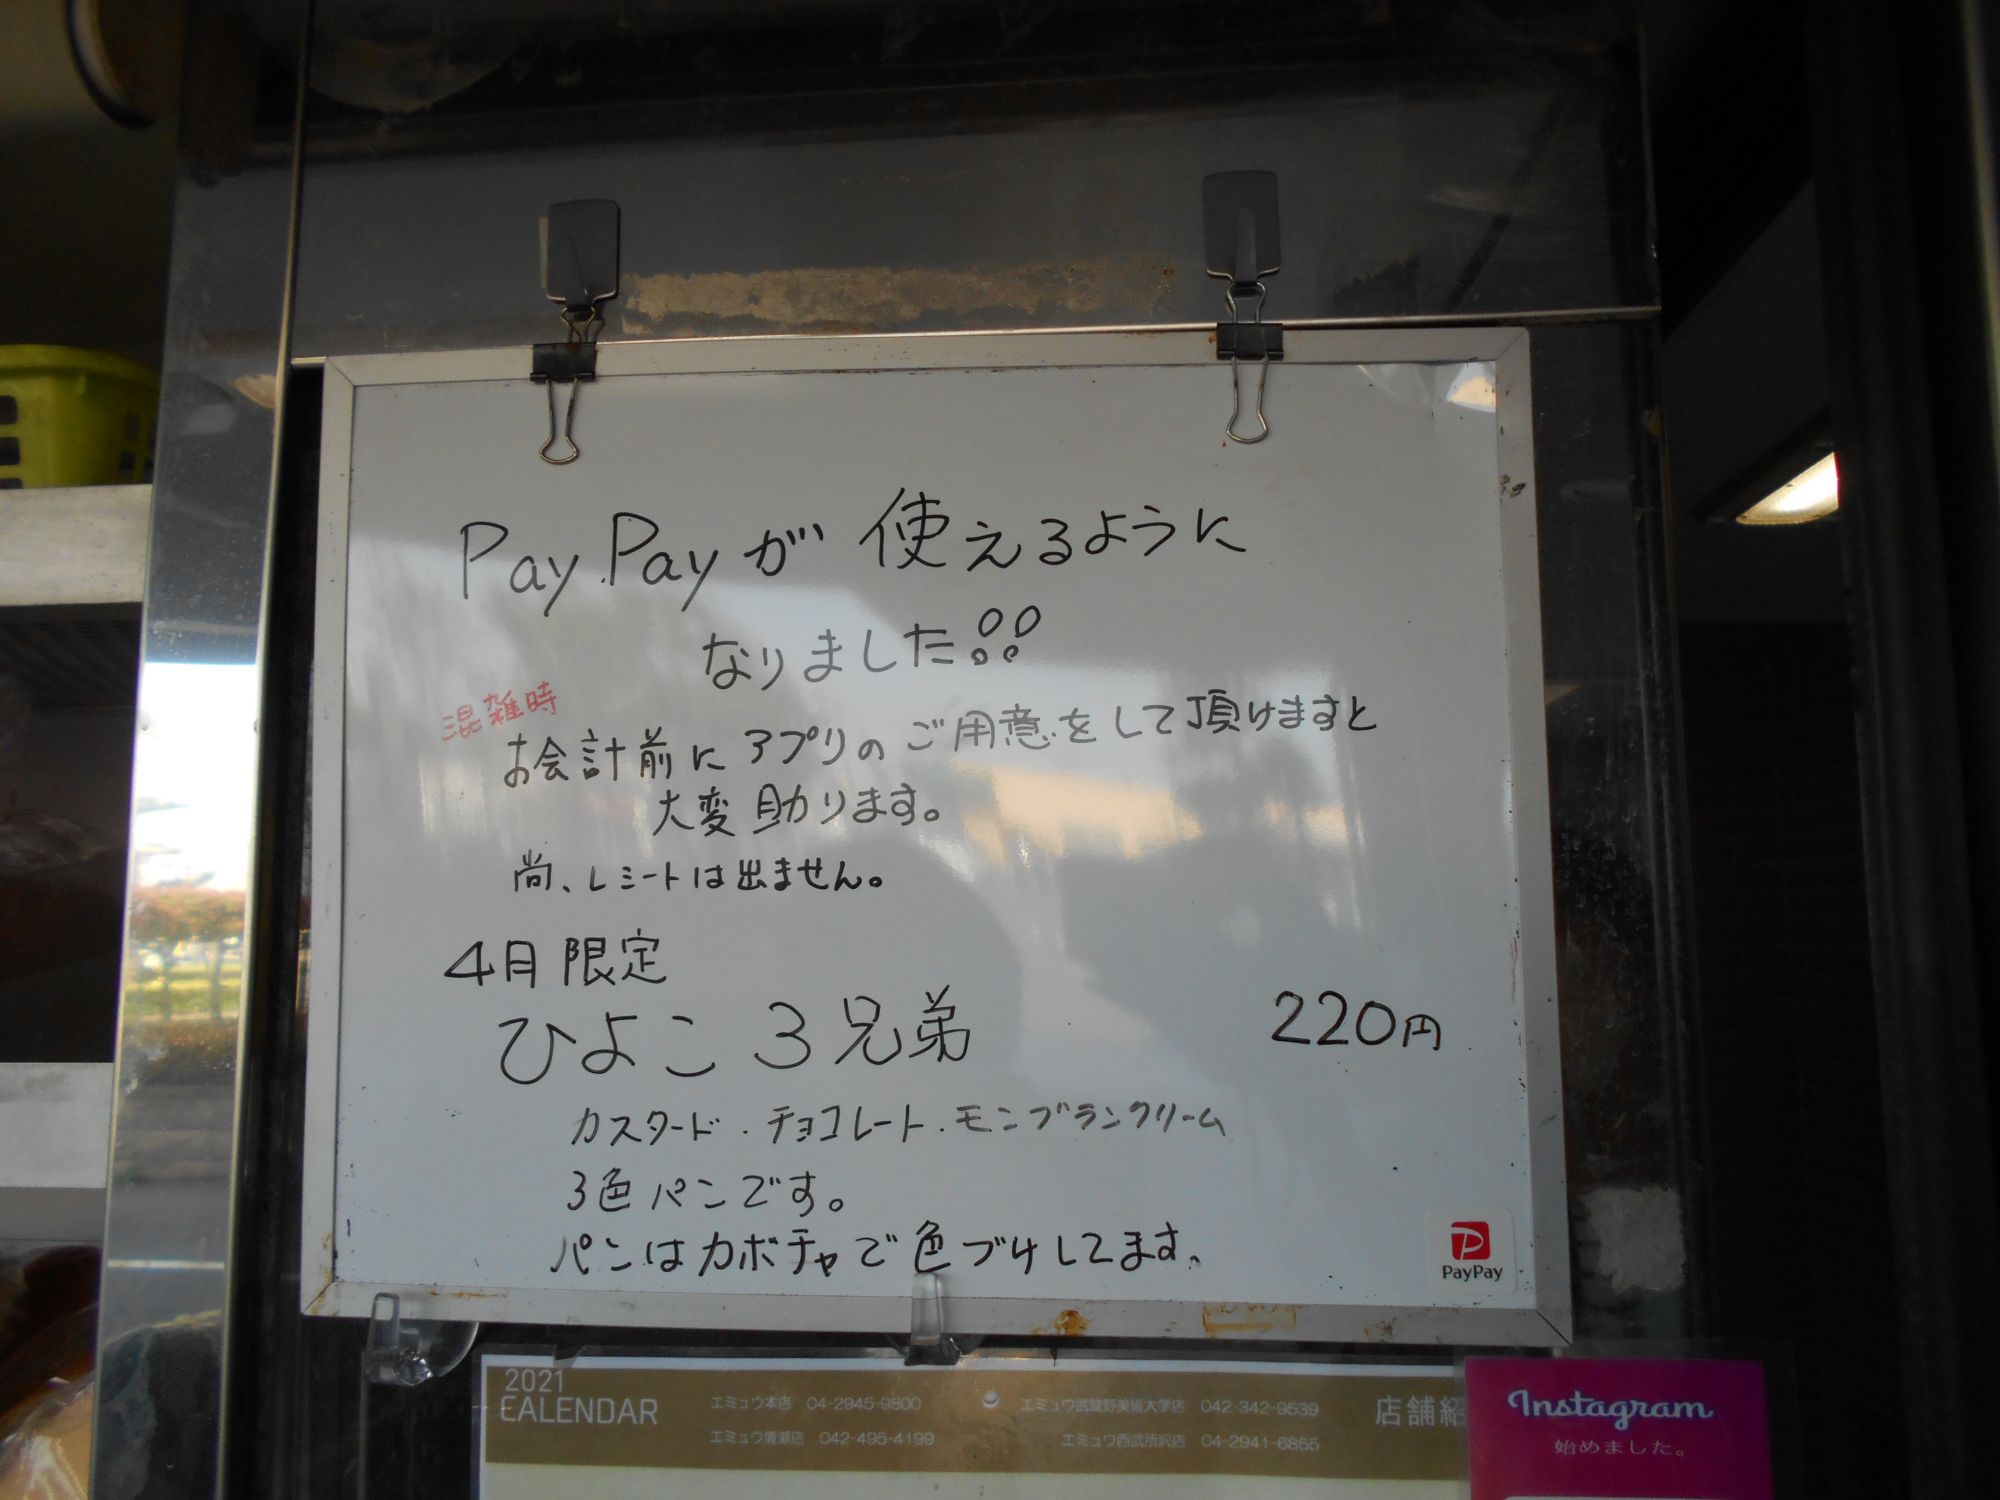 PayPayが使えるように
なりました!!
混雑時
お会計前にアプリのご用意をして頂けますと
大変助ります。
尚、レシートは出ません。
4月限定
ひよこ3兄弟 220円
カスタード・チョコレート・モンブランクリーム
3色パンです。
パンはカボチャで色づけしてます。
PayPay
2021
CALENDAR
エミュウ本店 04-2945-9800 エミュウ武蔵野美術大学店 042-342-9539
エミュウ清瀬店 042-495-4199 エミュウ西武所沢店 04-2941-6855
店舗紹
Instagram
始めました。